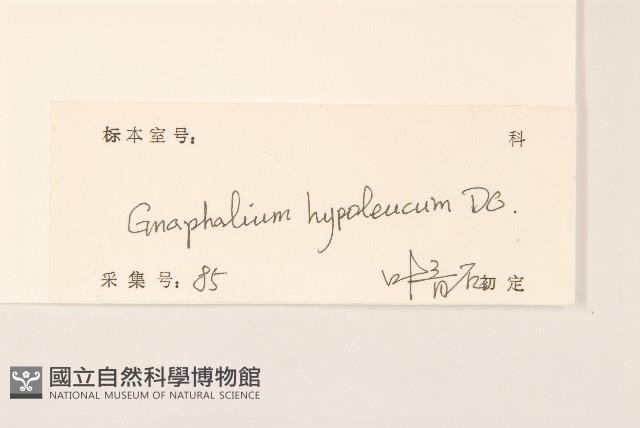 标本室号： 科
Gnaphalium hypoleucum DC.
采集号：85 叶青石初定
國立自然科學博物館
NATIONAL MUSEUM OF NATURAL SCIENCE